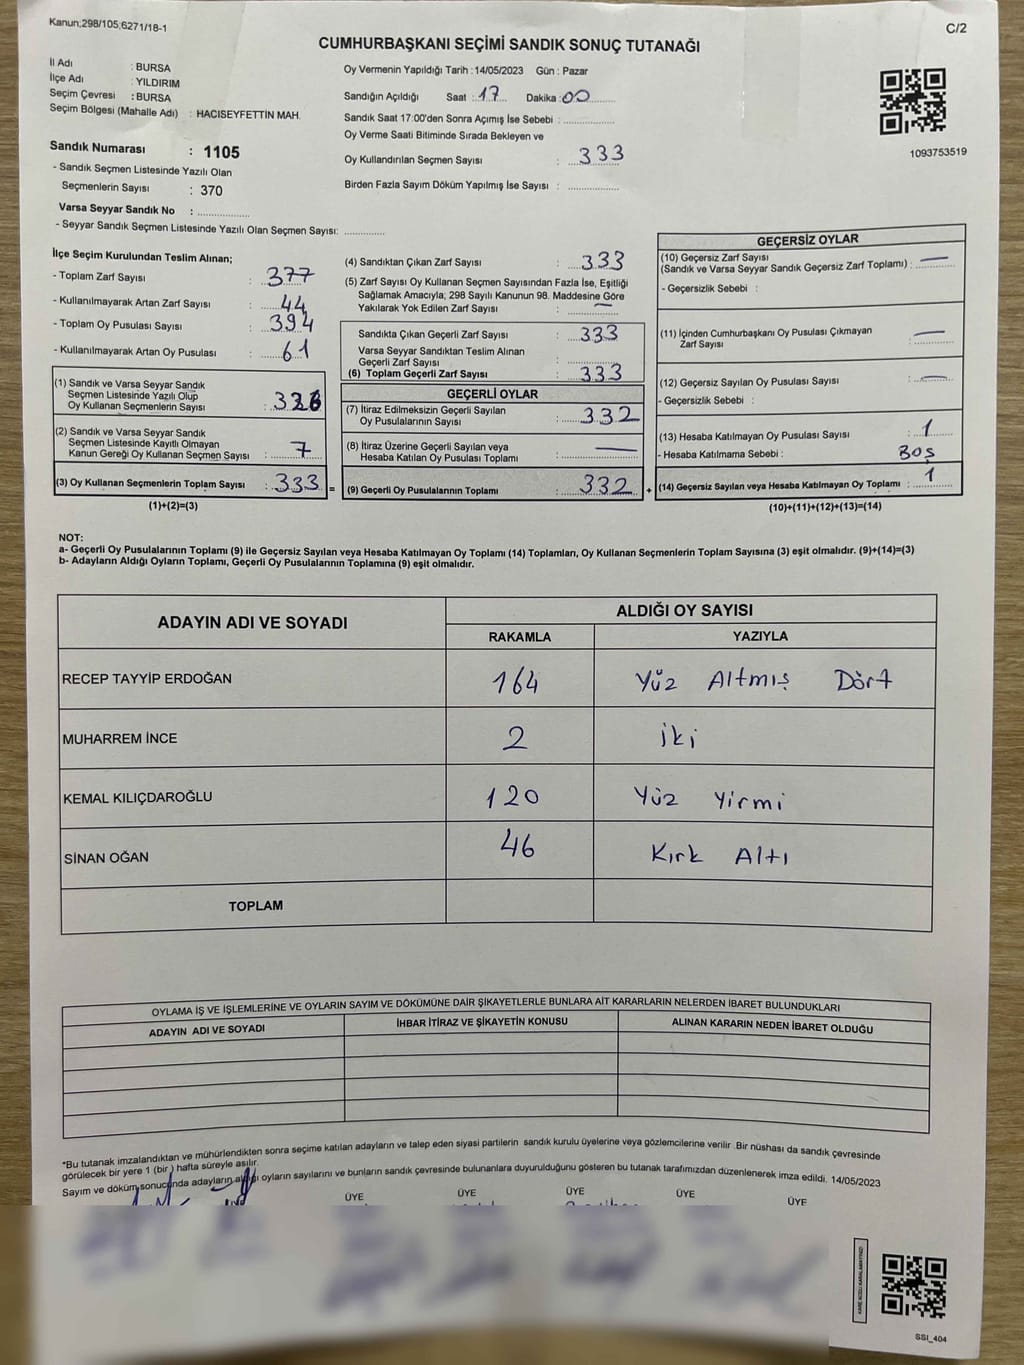 Kanun;298/105;6271/18-1
C/2
CUMHURBAŞKANI SEÇİMİ SANDIK SONUÇ TUTANAĞI
İl Adı : BURSA
İlçe Adı : YILDIRIM
Seçim Çevresi : BURSA
Seçim Bölgesi (Mahalle Adı) : HACISEYFETTİN MAH.
Sandık Numarası : 1105
- Sandık Seçmen Listesinde Yazılı Olan
Seçmenlerin Sayısı : 370
Varsa Seyyar Sandık No : ................
- Seyyar Sandık Seçmen Listesinde Yazılı Olan Seçmen Sayısı: ............
Oy Vermenin Yapıldığı Tarih :14/05/2023 Gün : Pazar
Sandığın Açıldığı Saat :17 Dakika :00
Sandık Saat 17:00'den Sonra Açımış İse Sebebi : ................
Oy Verme Saati Bitiminde Sırada Bekleyen ve
Oy Kullandırılan Seçmen Sayısı : 333
Birden Fazla Sayım Döküm Yapılmış İse Sayısı : ................
1093753519
İlçe Seçim Kurulundan Teslim Alınan;
- Toplam Zarf Sayısı : 377
- Kullanılmayarak Artan Zarf Sayısı : 44
- Toplam Oy Pusulası Sayısı : 394
- Kullanılmayarak Artan Oy Pusulası : 61
(1) Sandık ve Varsa Seyyar Sandık
Seçmen Listesinde Yazılı Olup
Oy Kullanan Seçmenlerin Sayısı : 326
(2) Sandık ve Varsa Seyyar Sandık
Seçmen Listesinde Kayıtlı Olmayan
Kanun Gereği Oy Kullanan Seçmen Sayısı : 7
(3) Oy Kullanan Seçmenlerin Toplam Sayısı : 333 =
(1)+(2)=(3)
(4) Sandıktan Çıkan Zarf Sayısı : 333
(5) Zarf Sayısı Oy Kullanan Seçmen Sayısından Fazla İse, Eşitliği
Sağlamak Amacıyla; 298 Sayılı Kanunun 98. Maddesine Göre
Yakılarak Yok Edilen Zarf Sayısı : —
Sandıkta Çıkan Geçerli Zarf Sayısı : 333
Varsa Seyyar Sandıktan Teslim Alınan
Geçerli Zarf Sayısı : ................
(6) Toplam Geçerli Zarf Sayısı : 333
GEÇERLİ OYLAR
(7) İtiraz Edilmeksizin Geçerli Sayılan
Oy Pusulalarının Sayısı : 332
(8) İtiraz Üzerine Geçerli Sayılan veya
Hesaba Katılan Oy Pusulası Toplamı : —
(9) Geçerli Oy Pusulalarının Toplamı : 332 +
GEÇERSİZ OYLAR
(10) Geçersiz Zarf Sayısı
(Sandık ve Varsa Seyyar Sandık Geçersiz Zarf Toplamı) : —
- Geçersizlik Sebebi :
(11) İçinden Cumhurbaşkanı Oy Pusulası Çıkmayan
Zarf Sayısı : —
(12) Geçersiz Sayılan Oy Pusulası Sayısı : —
- Geçersizlik Sebebi :
(13) Hesaba Katılmayan Oy Pusulası Sayısı : 1
- Hesaba Katılmama Sebebi : Boş
(14) Geçersiz Sayılan veya Hesaba Katılmayan Oy Toplamı : 1
(10)+(11)+(12)+(13)=(14)
NOT:
a- Geçerli Oy Pusulalarının Toplamı (9) ile Geçersiz Sayılan veya Hesaba Katılmayan Oy Toplamı (14) Toplamları, Oy Kullanan Seçmenlerin Toplam Sayısına (3) eşit olmalıdır. (9)+(14)=(3)
b- Adayların Aldığı Oyların Toplamı, Geçerli Oy Pusulalarının Toplamına (9) eşit olmalıdır.
ADAYIN ADI VE SOYADI ALDIĞI OY SAYISI
RAKAMLA YAZIYLA
RECEP TAYYİP ERDOĞAN 164 Yüz Altmış Dört
MUHARREM İNCE 2 iki
KEMAL KILIÇDAROĞLU 120 Yüz Yirmi
SİNAN OĞAN 46 Kırk Altı
TOPLAM
OYLAMA İŞ VE İŞLEMLERİNE VE OYLARIN SAYIM VE DÖKÜMÜNE DAİR ŞİKAYETLERLE BUNLARA AİT KARARLARIN NELERDEN İBARET BULUNDUKLARI
ADAYIN ADI VE SOYADI İHBAR İTİRAZ VE ŞİKAYETİN KONUSU ALINAN KARARIN NEDEN İBARET OLDUĞU
*Bu tutanak imzalandıktan ve mühürlendikten sonra seçime katılan adayların ve talep eden siyasi partilerin sandık kurulu üyelerine veya gözlemcilerine verilir .Bir nüshası da sandık çevresinde
görülecek bir yere 1 (bir ) hafta süreyle asılır.
Sayım ve döküm sonucunda adayların aldığı oyların sayılarını ve bunların sandık çevresinde bulunanlara duyurulduğunu gösteren bu tutanak tarafımızdan düzenlenerek imza edildi. 14/05/2023
ÜYE ÜYE ÜYE ÜYE ÜYE
KARE KODU KARALAMAYINIZ!
SSİ_404